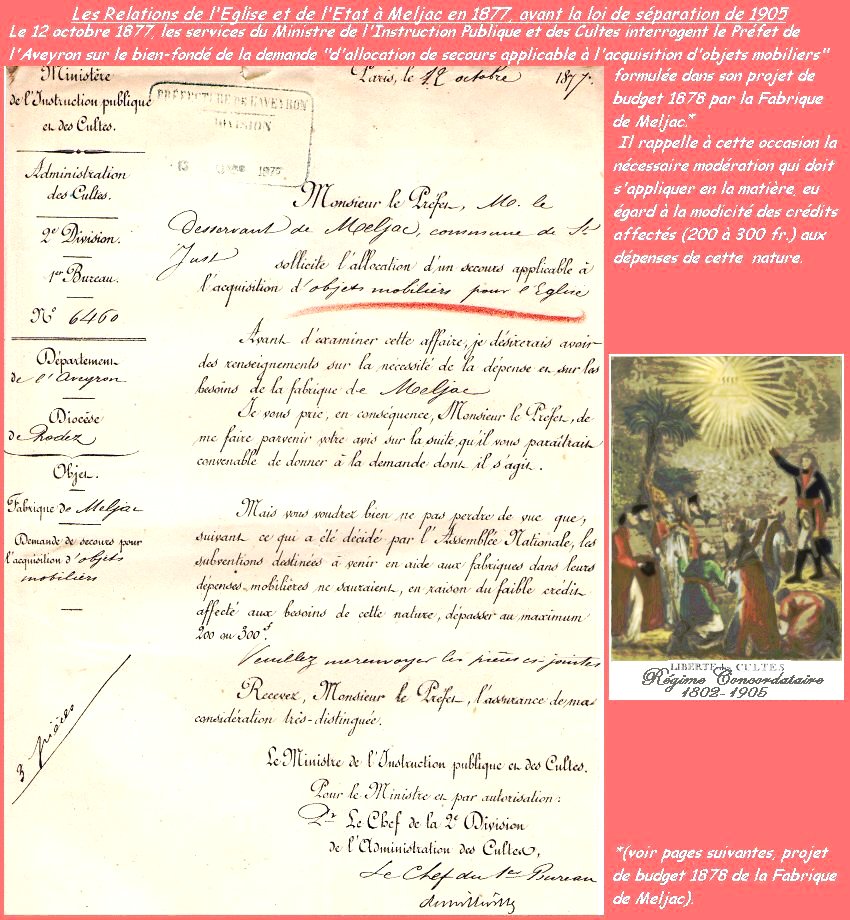 Les Relations de l'Eglise et de l'Etat à Meljac en 1877, avant la loi de séparation de 1905
Le 12 octobre 1877, les services du Ministre de l'Instruction Publique et des Cultes interrogent le Préfet de
l'Aveyron sur le bien-fondé de la demande "d'allocation de secours applicable à l'acquisition d'objets mobiliers"
formulée dans son projet de
budget 1878 par la Fabrique
de Meljac.*
Il rappelle à cette occasion la
nécessaire modération qui doit
s'appliquer en la matière, eu
égard à la modicité des crédits
affectés (200 à 300 fr.) aux
dépenses de cette nature.
Ministère
de l'Instruction publique
et des Cultes.
Administration
des Cultes.
2e Division.
1er Bureau.
No 6460
Département
de l'Aveyron
Diocèse
de Rodez
Objet.
Fabrique de Meljac
Demande de secours pour
l'acquisition d'objets
mobiliers
3 pièces
Paris, le 12 octobre 1877.
PRÉFECTURE DE L'AVEYRON
DIVISION
Monsieur le Préfet, M. le
Desservant de Meljac, commune de St
Just sollicite l'allocation d'un secours applicable à
l'acquisition d'objets mobiliers pour l'Eglise
Avant d'examiner cette affaire, je désirerais avoir
des renseignements sur la nécessité de la dépense et sur les
besoins de la fabrique de Meljac
Je vous prie, en conséquence, Monsieur le Préfet, de
me faire parvenir votre avis sur la suite qu'il vous paraîtrait
convenable de donner à la demande dont il s'agit.
Mais vous voudrez bien ne pas perdre de vue que,
suivant ce qui a été décidé par l'Assemblée Nationale, les
subventions destinées à venir en aide aux fabriques dans leurs
dépenses mobilières ne sauraient, en raison du faible crédit
affecté aux besoins de cette nature, dépasser au maximum
200 ou 300f.
Veuillez me renvoyer les pièces ci-jointes
Recevez, Monsieur le Préfet, l'assurance de ma
considération très-distinguée.
Le Ministre de l'Instruction publique et des Cultes.
Pour le Ministre et par autorisation:
Pr Le Chef de la 2e Division
de l'Administration des Cultes,
Le Chef du 1er Bureau
LIBERTÉ des CULTES
Régime Concordataire
1802-1905
*(voir pages suivantes, projet
de budget 1878 de la Fabrique
de Meljac).